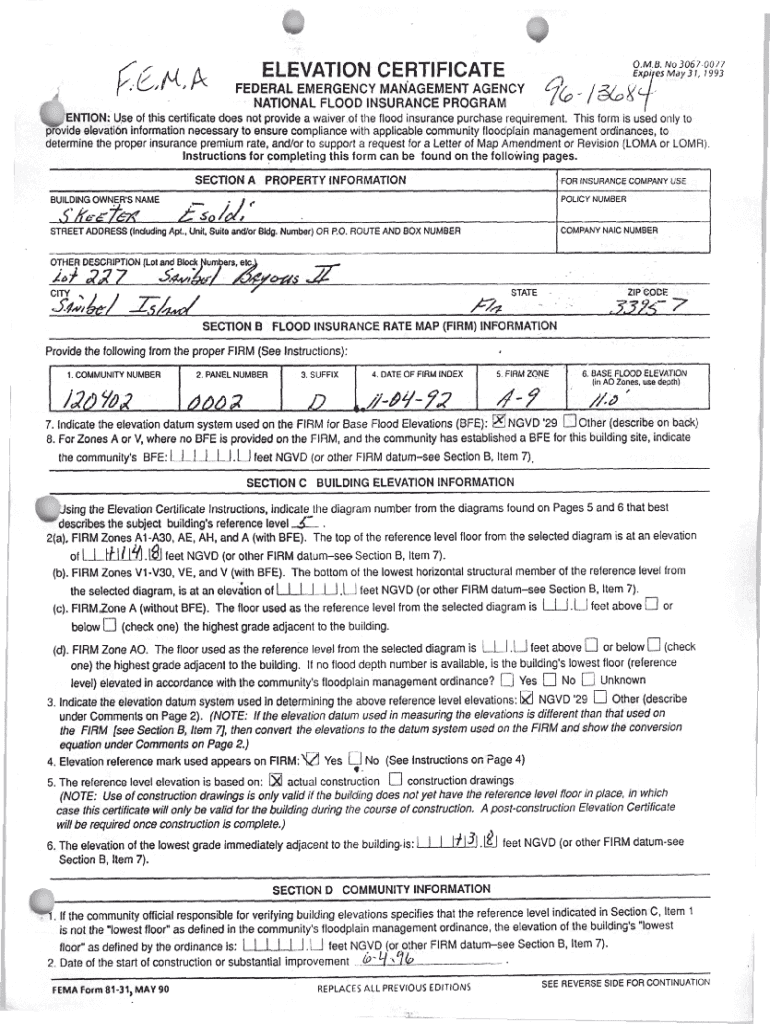 F.E.M.A
ELEVATION CERTIFICATE
O.M.B. No 3067-0077
Expires May 31, 1993
FEDERAL EMERGENCY MANAGEMENT AGENCY
NATIONAL FLOOD INSURANCE PROGRAM
96-13684
ENTION: Use of this certificate does not provide a waiver of the flood insurance purchase requirement. This form is used only to
provide elevation information necessary to ensure compliance with applicable community floodplain management ordinances, to
determine the proper insurance premium rate, and/or to support a request for a Letter of Map Amendment or Revision (LOMA or LOMR).
Instructions for completing this form can be found on the following pages.
SECTION A PROPERTY INFORMATION
FOR INSURANCE COMPANY USE
BUILDING OWNER'S NAME
POLICY NUMBER
SKEETER Esoldi
STREET ADDRESS (Including Apt., Unit, Suite and/or Bldg. Number) OR P.O. ROUTE AND BOX NUMBER
COMPANY NAIC NUMBER
OTHER DESCRIPTION (Lot and Block Numbers, etc.)
Lot 227 Sanibel Bayous II
CITY STATE ZIP CODE
Sanibel Island Fla 33957
SECTION B FLOOD INSURANCE RATE MAP (FIRM) INFORMATION
Provide the following from the proper FIRM (See Instructions):
1. COMMUNITY NUMBER 2. PANEL NUMBER 3. SUFFIX 4. DATE OF FIRM INDEX 5. FIRM ZONE 6. BASE FLOOD ELEVATION
(in AO Zones, use depth)
120402 0002 D 11-04-92 A-9 11.0'
7. Indicate the elevation datum system used on the FIRM for Base Flood Elevations (BFE): ☒ NGVD '29 ☐ Other (describe on back)
8. For Zones A or V, where no BFE is provided on the FIRM, and the community has established a BFE for this building site, indicate
the community's BFE: | | | | | |.| | feet NGVD (or other FIRM datum–see Section B, Item 7).
SECTION C BUILDING ELEVATION INFORMATION
Using the Elevation Certificate Instructions, indicate the diagram number from the diagrams found on Pages 5 and 6 that best
describes the subject building's reference level 5 .
2(a). FIRM Zones A1-A30, AE, AH, and A (with BFE). The top of the reference level floor from the selected diagram is at an elevation
of | | |+|1|4|.|8| feet NGVD (or other FIRM datum–see Section B, Item 7).
(b). FIRM Zones V1-V30, VE, and V (with BFE). The bottom of the lowest horizontal structural member of the reference level from
the selected diagram, is at an elevation of | | | | | |.| | feet NGVD (or other FIRM datum–see Section B, Item 7).
(c). FIRM Zone A (without BFE). The floor used as the reference level from the selected diagram is | | |.| | feet above ☐ or
below ☐ (check one) the highest grade adjacent to the building.
(d). FIRM Zone AO. The floor used as the reference level from the selected diagram is | | |.| | feet above ☐ or below ☐ (check
one) the highest grade adjacent to the building. If no flood depth number is available, is the building's lowest floor (reference
level) elevated in accordance with the community's floodplain management ordinance? ☐ Yes ☐ No ☐ Unknown
3. Indicate the elevation datum system used in determining the above reference level elevations: ☒ NGVD '29 ☐ Other (describe
under Comments on Page 2). (NOTE: If the elevation datum used in measuring the elevations is different than that used on
the FIRM [see Section B, Item 7], then convert the elevations to the datum system used on the FIRM and show the conversion
equation under Comments on Page 2.)
4. Elevation reference mark used appears on FIRM: ☑ Yes ☐ No (See Instructions on Page 4)
5. The reference level elevation is based on: ☒ actual construction ☐ construction drawings
(NOTE: Use of construction drawings is only valid if the building does not yet have the reference level floor in place, in which
case this certificate will only be valid for the building during the course of construction. A post-construction Elevation Certificate
will be required once construction is complete.)
6. The elevation of the lowest grade immediately adjacent to the building is: | | | |+|3|.|8| feet NGVD (or other FIRM datum-see
Section B, Item 7).
SECTION D COMMUNITY INFORMATION
1. If the community official responsible for verifying building elevations specifies that the reference level indicated in Section C, Item 1
is not the "lowest floor" as defined in the community's floodplain management ordinance, the elevation of the building's "lowest
floor" as defined by the ordinance is: | | | | | |.| | feet NGVD (or other FIRM datum–see Section B, Item 7).
2. Date of the start of construction or substantial improvement 6-4-96 .
FEMA Form 81-31, MAY 90 REPLACES ALL PREVIOUS EDITIONS SEE REVERSE SIDE FOR CONTINUATION